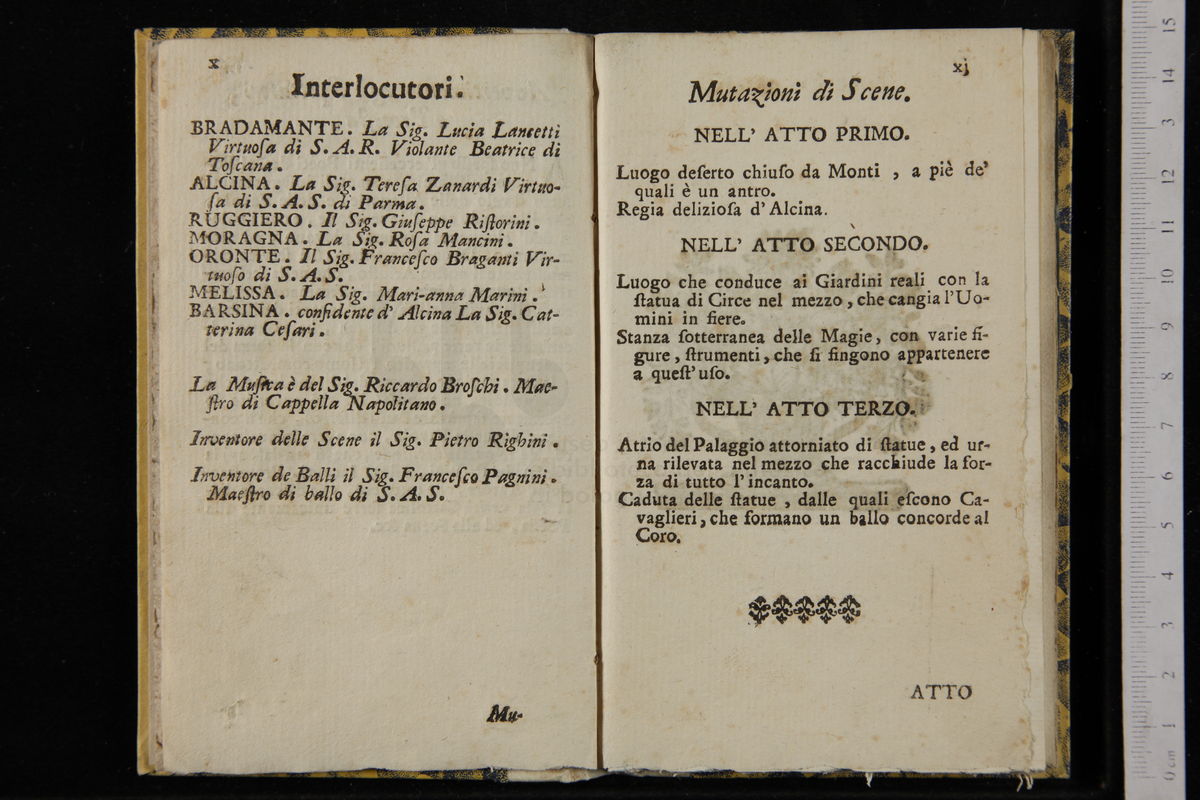 x
Interlocutori.
BRADAMANTE. La Sig. Lucia Lancetti
Virtuoſa di S. A. R. Violante Beatrice di
Toſcana.
ALCINA. La Sig. Tereſa Zanardi Virtuo-
ſa di S. A. S. di Parma.
RUGGIERO. Il Sig. Giuſeppe Riſtorini.
MORAGNA. La Sig. Roſa Mancini.
ORONTE. Il Sig. Franceſco Braganti Vir-
tuoſo di S. A. S.
MELISSA. La Sig. Mari-anna Marini.
BARSINA. confidente d' Alcina La Sig. Cat-
terina Ceſari.
La Muſica è del Sig. Riccardo Broſchi. Mae-
ſtro di Cappella Napolitano.
Inventore delle Scene il Sig. Pietro Righini.
Inventore de Balli il Sig. Franceſco Pagnini.
Maeſtro di ballo di S. A. S.
Mu-
xj
Mutazioni di Scene.
NELL' ATTO PRIMO.
Luogo deſerto chiuſo da Monti, a piè de'
quali è un antro.
Regia delizioſa d' Alcina.
NELL' ATTO SECONDO.
Luogo che conduce ai Giardini reali con la
ſtatua di Circe nel mezzo, che cangia l'Uo-
mini in fiere.
Stanza ſotterranea delle Magie, con varie fi-
gure, ſtrumenti, che ſi fingono appartenere
a queſt' uſo.
NELL' ATTO TERZO.
Atrio del Palaggio attorniato di ſtatue, ed ur-
na rilevata nel mezzo che racchiude la for-
za di tutto l' incanto.
Caduta delle ſtatue, dalle quali eſcono Ca-
vaglieri, che formano un ballo concorde al
Coro.
ATTO
0 cm 1 2 3 4 5 6 7 8 9 10 11 12 3 14 15